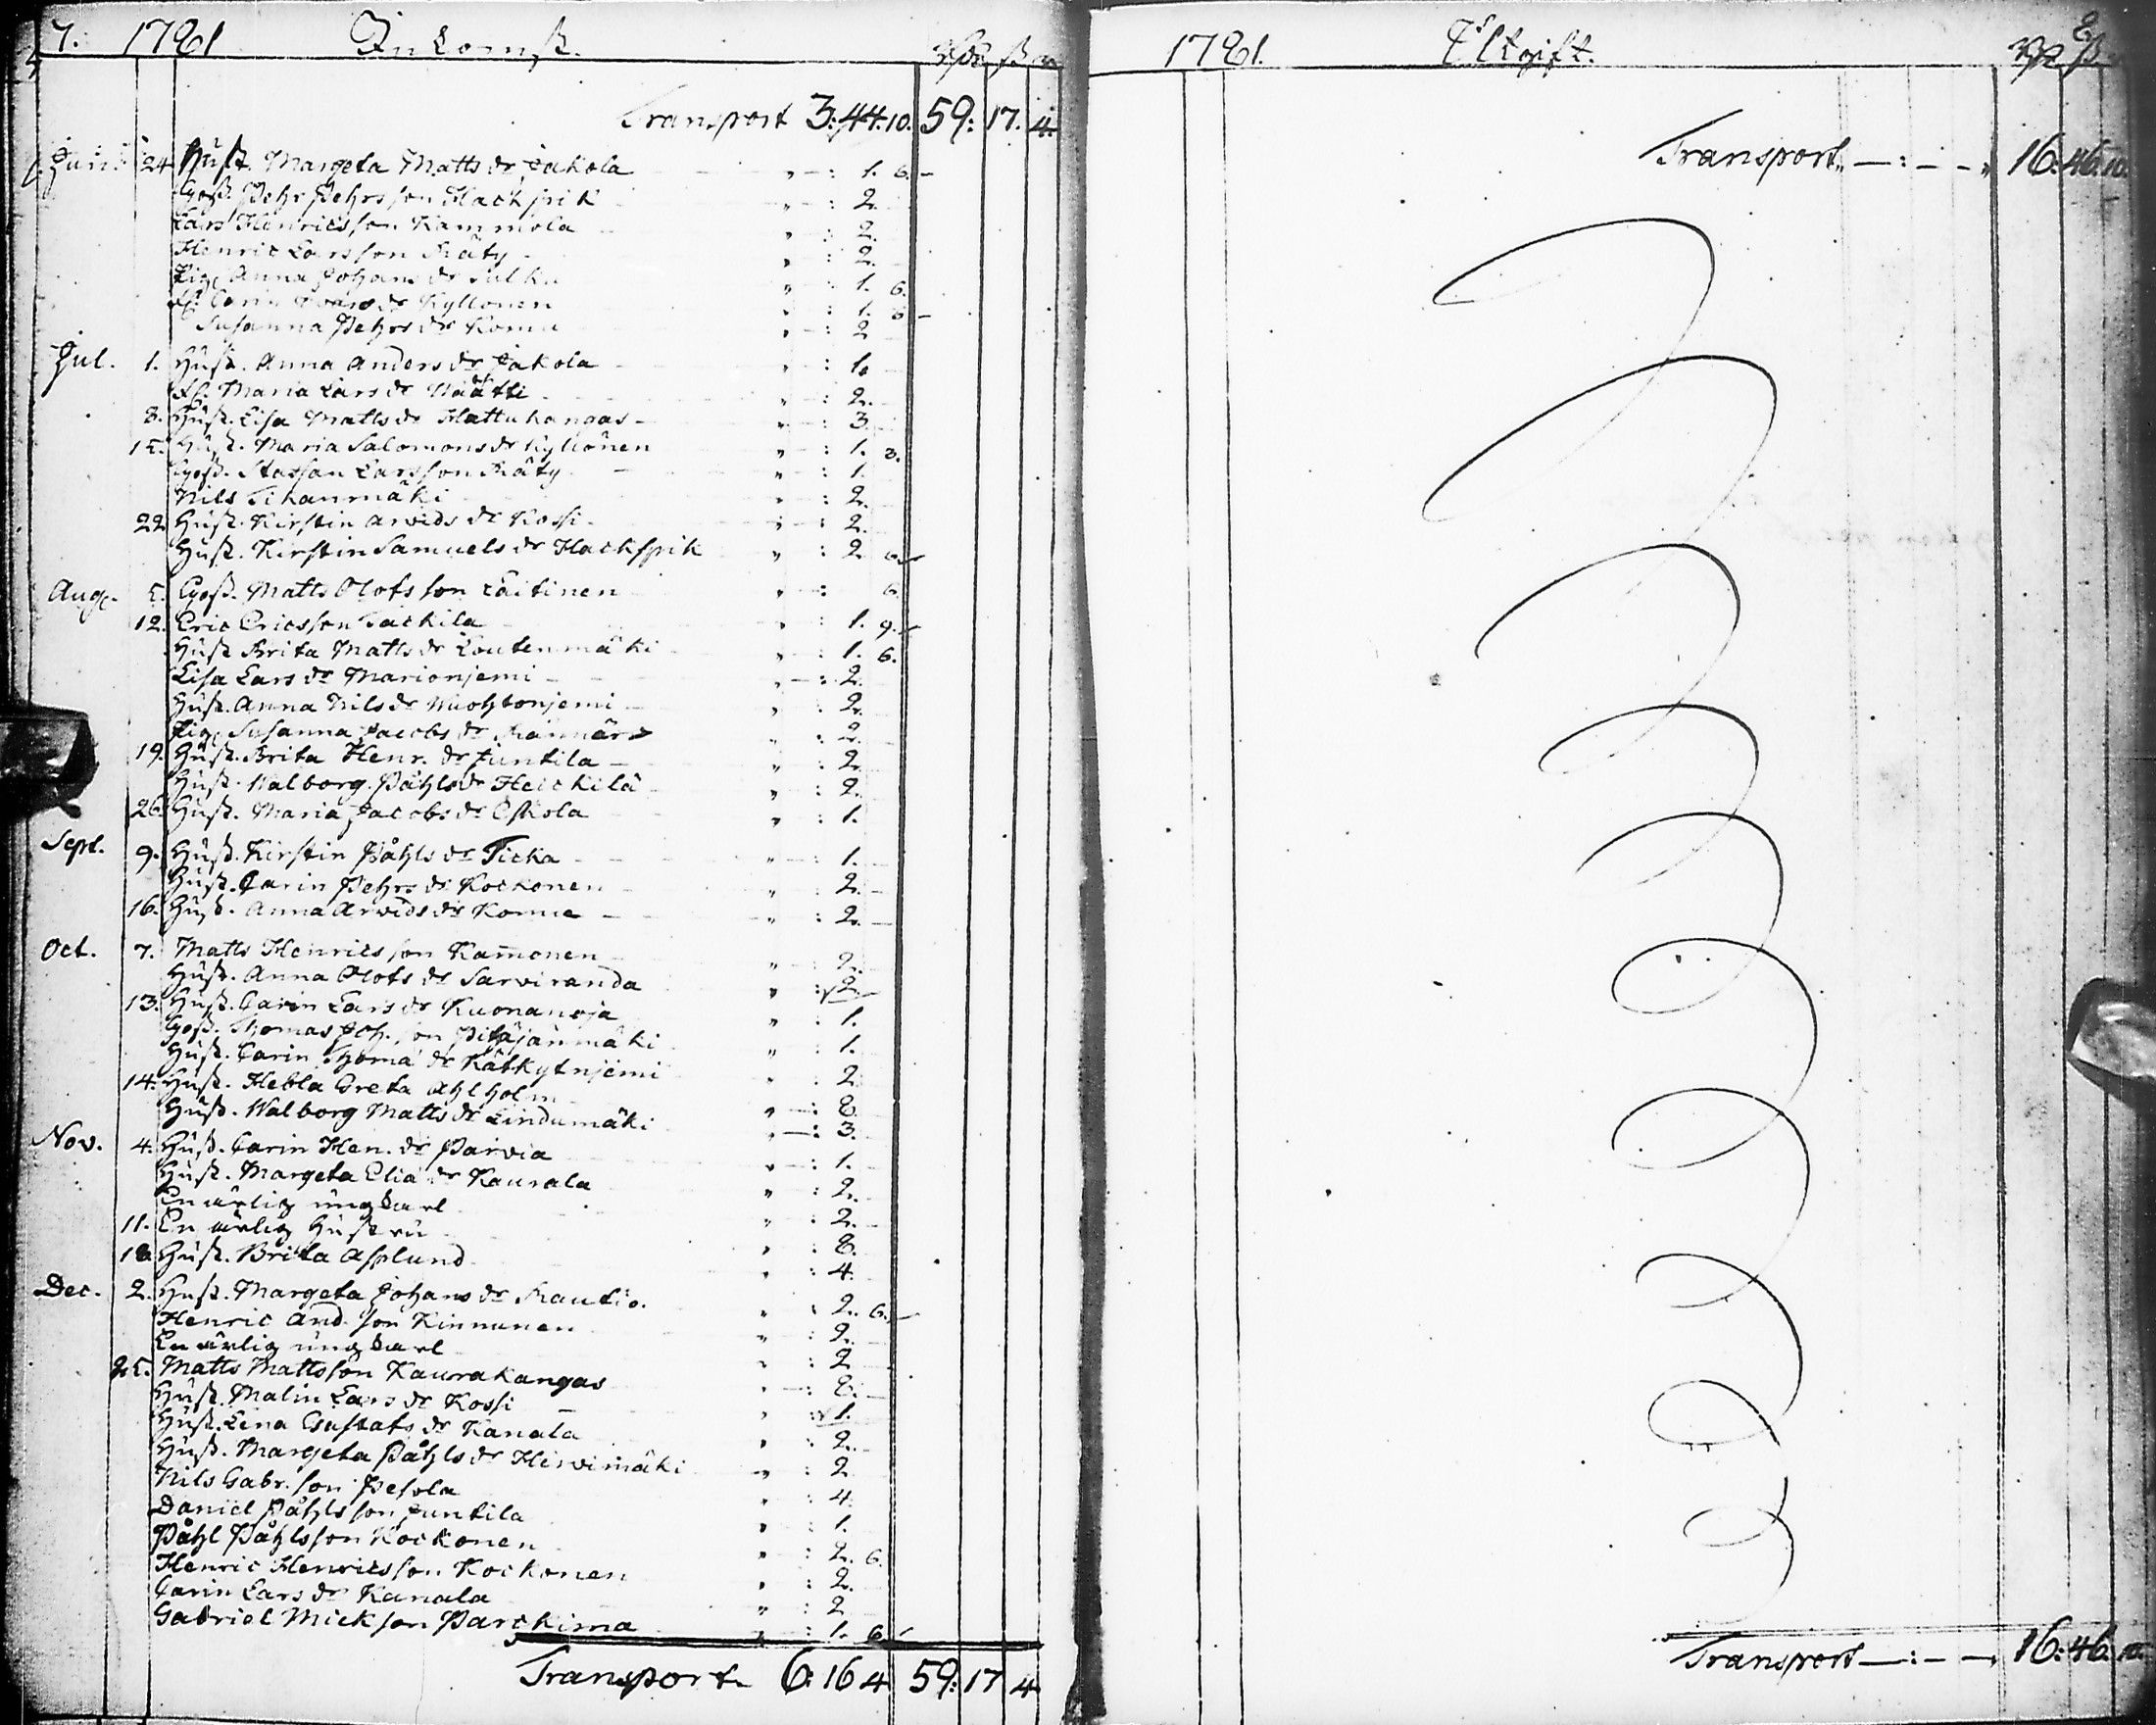 7. 1781 Inkomst. Rdr ß rn
Transport 3: 44. 10. 59: 17. 4.
Juni 24 Hust. Margeta Matts dr Jakola " : 1. 6.
Goss. Pehr Pehrsson Hackspik " : 2.
Lars Henricsson Kammola " : 2.
Henric Larsson Räty " : 2.
Pig. Anna Johans dr Sulku " : 1. 6.
Carin dr Kyllönen " : 1. 8
Susanna Pehrs dr Komu " : 2
Jul. 1. Hust. Anna Anders dr Jakola " : 1.
Maria Lars dr Määtti " : 2.
8. Hust. Lisa Matts dr Hattuhangas " : 3.
15. Hust. Maria Salomons dr Kyllönen " : 1. 3.
Goss. Staffan Larsson Räty " : 1.
Nils Tihanmäki " : 2.
22 Hust. Kirstin Arvids dr Kossi " : 2.
Hust. Kirstin Samuels dr Hackspik " : 2 6.
Aug. 5. Goss. Matts Olofsson Laitinen " : 6.
12. Eric Ericsson Tackila " : 1. 9.
Hust Brita Matts dr Loutenmäki " : 1. 6.
Lisa Lars dr Marionjemi " : 2.
Hust. Anna Nils dr Muhtonjemi " : 2.
Pig. Susanna Jacobs dr " : 2.
19. Hust. Brita Henr. dr Juntila " : 2.
Hust. Walborg Påhls dr Heickilä " : 2.
26. Hust. Maria Jacobs dr Eskola " : 1.
Sept. 9. Hust. Kirstin Påhls dr Ticka " : 1.
Hust. Carin Pehrs dr Kockonen " : 2.
16. Hust. Anna Arvids dr Komue " : 2.
Oct. 7. Matts Henricsson Kam̄onen " : 2.
Hust. Anna Olofs dr Sarviranda " : 2.
13. Hust. Carin Lars dr Kuonanoja " : 1.
Goss. Thomas Joh. son Pitäjänmäki " : 1.
Hust. Carin Thoma dr Kätkytnjemi " : 2
14. Hust. Hebla Greta Ahlholm " : 8.
Hust. Walborg Matts dr Lindumäki " : 3.
Nov. 4. Hust. Carin Hen. dr Parvia " : 1.
Hust. Margeta Elia dr Kaurala " : 2.
En ärlig ungkarl " : 2.
11. En ärlig Hustru " : 8.
18 Hust. Brita Asplund " : 4.
Dec. 2. Hust. Margeta Johans dr Rautio. " : 2. 6.
Henric And. son Kinnunen " : 2.
En ärlig ungkarl " : 2
25. Matts Mattsson Kaurakangas " : 8.
Hust. Malin Lars dr Kossi " : 1.
Hust. Lena Gustafs dr Kanala " : 2.
Hust. Margeta Påhls dr Hirvimäki " : 2
Nils Gabr. son Pesola " : 4.
Daniel Påhlsson Juntila " : 1.
Påhl Påhlsson Kockonen " : 2. 6.
Henric Henricsson Kockonen " : 2.
Carin Lars dr Kanala " : 2
Gabriel Mickson Parckima " : 1. 6.
Transport 6: 16 4 59: 17 4
1781. Utgift. Rdr ß 8
Transport 16: 46. 10.
Transport 16: 46. 10.